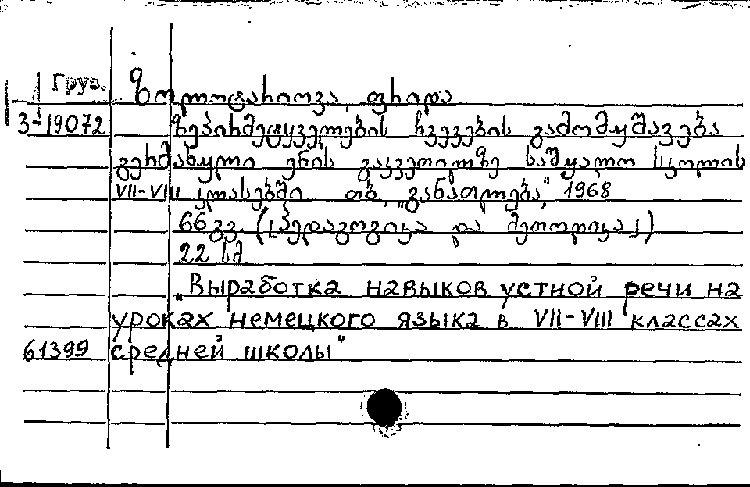 Груз. ზოლოტარიოვა, ფრიდა
3-19072 ზეპირმეტყველების ჩვევების გამომუშავება
გერმანული ენის გაკვეთილზე საშუალო სკოლის
VII-VIII კლასებში თბ., "განათლება", 1968
66 გვ. (პედაგოგიკა და მეთოდიკა)
22 სმ
"Выработка навыков устной речи на
уроках немецкого языка в VII-VIII классах
61399 средней школы"